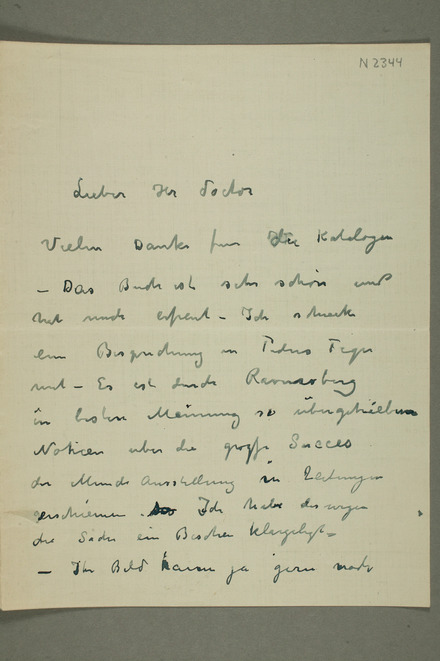 N 2344
Lieber Her Doctor
Vielen Danke fur Ihre Katalogen
– Das Buch ist sehr schön und
hat mich erfreut – Ich schicke
ein Besprechung in Tidens Tegn
mit – Es ist durch Ravensberg
in besten Meinung so übertriebene
Notizen uber die grosse Succes
der Munch Ausstellung in Zeitungen
erschienen Ich habe deswegen
die Sache ein Bischen klargelegt –
– Ihr Bild kann ja gern noch